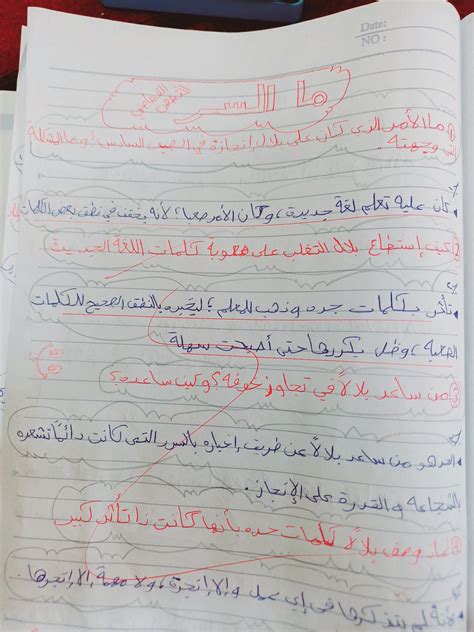 Date:
NO :
ما السر
النص القصصي
① ما الأمر الذي كان على بلال إنجازه في الصيف السادس؟ وما المشكلة
التي وجهته.
كان عليه تعلم لغة جديدة، وكان الأمر صعبا؛ لأنه يخفت في نطق بعض الكلمات
② كيف إستطاع بلال التغلب على صعوبة كلمات اللغة الجديدة
تأثر بكلمات جده وذهب للمعلم؛ ليخبره بالنطق الصحيح للكلمات
الصعبة، وظل يكررها حتى أصبحت سهلة
③ من ساعد بلالاً في تجاوز خوفه؟ وكيف ساعده؟
الجد هو من ساعد بلالاً عن طريف إخباره بالسر التى كانت دائمًا تشعره
بالشجاعة و القدرة على الإنجاز.
④ لما وصف بلالاً كلمات جده بأنها كانت ذا تأثر كبير
لأنه لم يتذكرها في إى عمل و إلا إنجزة، ولا مهمة إلا إنجزها.